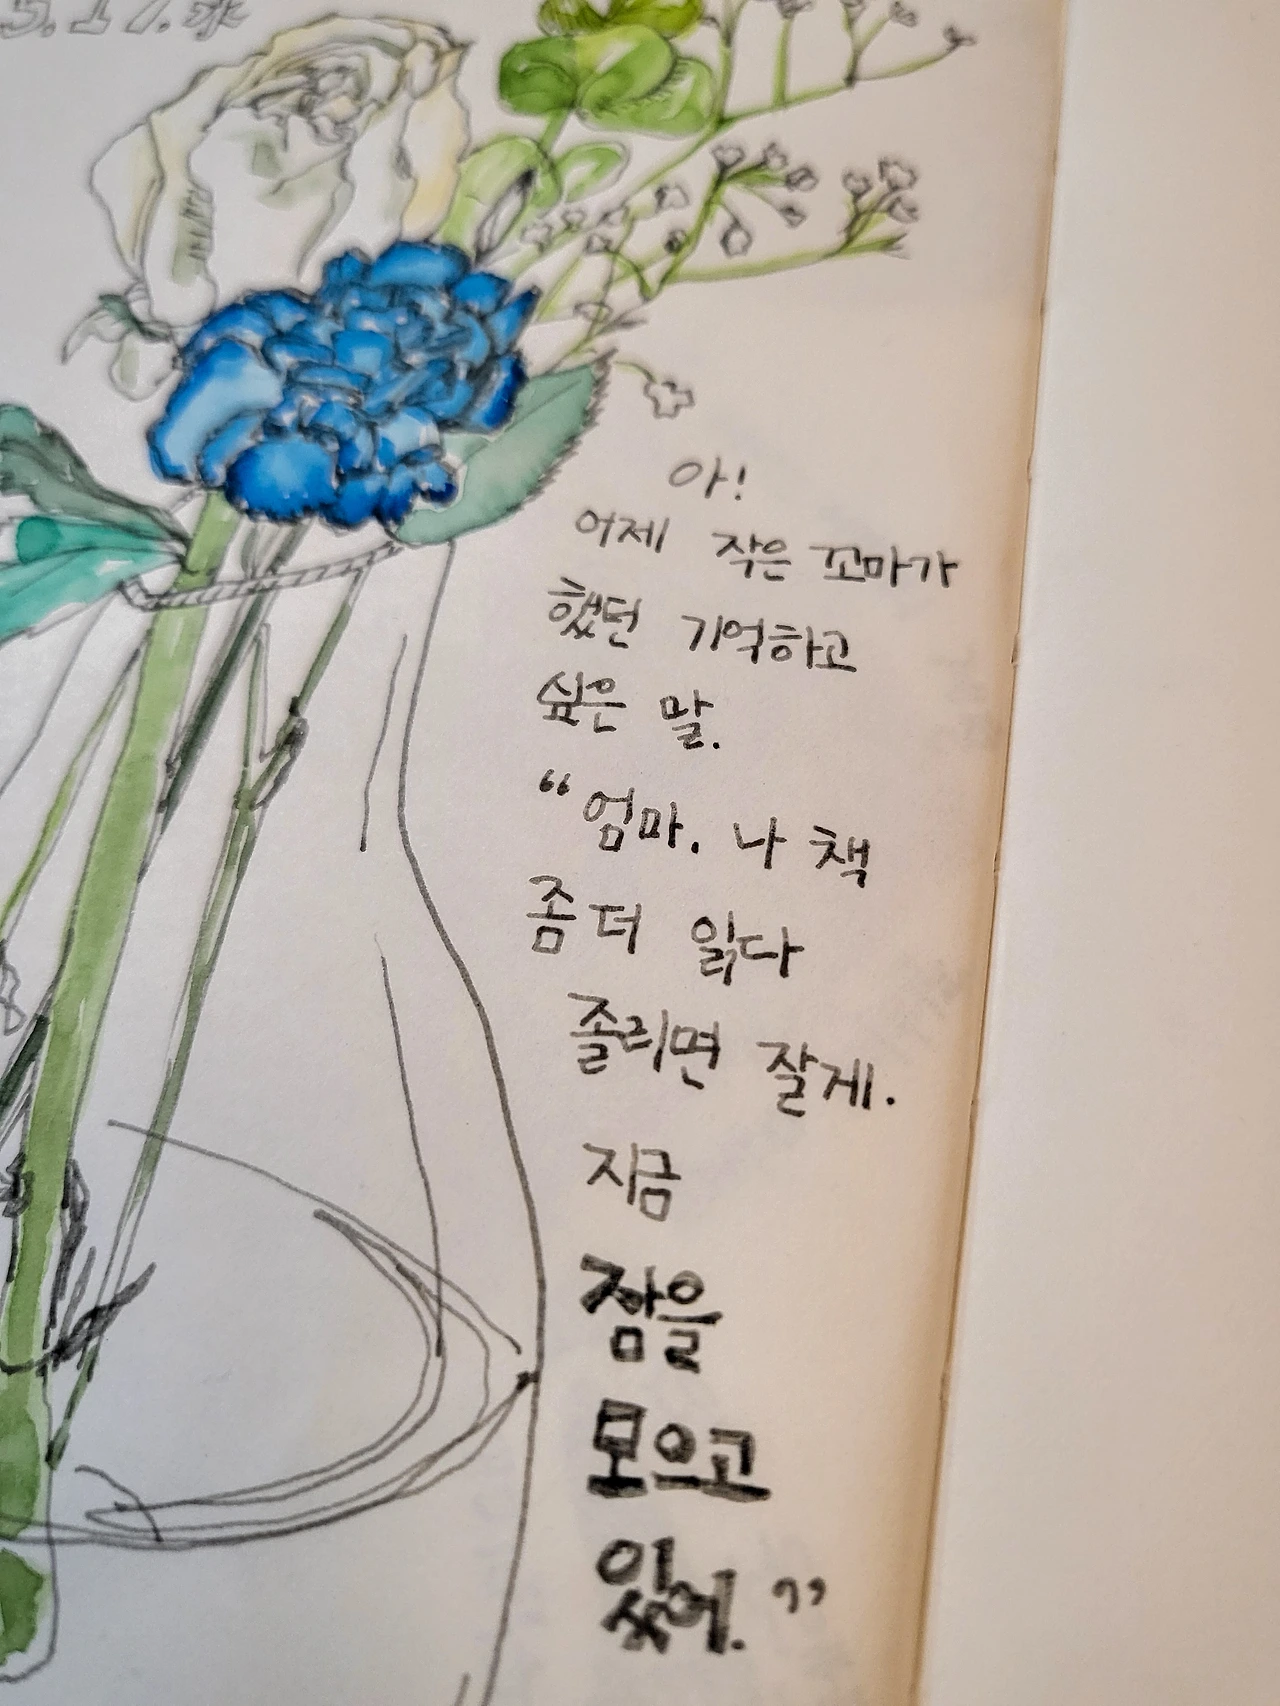 5.17.水
아!
어제 작은 꼬마가
했던 기억하고
싶은 말.
“엄마. 나 책
좀 더 읽다
졸리면 잘게.
지금
잠을
모으고
있어.”